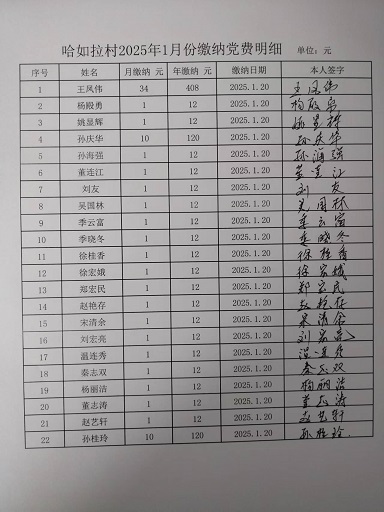 哈如拉村2025年1月份缴纳党费明细 单位：元
序号 姓名 月缴纳 元 年缴纳 元 缴纳日期 本人签字
1 王凤伟 34 408 2025.1.20 王凤伟
2 杨殿勇 1 12 2025.1.20
3 姚显辉 1 12 2025.1.20
4 孙庆华 10 120 2025.1.20 孙庆华
5 孙海强 1 12 2025.1.20 孙海强
6 董连江 1 12 2025.1.20 董连江
7 刘友 1 12 2025.1.20 刘友
8 吴国林 1 12 2025.1.20 吴国林
9 季云富 1 12 2025.1.20 季云富
10 季晓冬 1 12 2025.1.20 季晓冬
11 徐桂香 1 12 2025.1.20 徐桂香
12 徐宏娥 1 12 2025.1.20 徐宏娥
13 郑宏民 1 12 2025.1.20 郑宏民
14 赵艳存 1 12 2025.1.20 赵艳存
15 宋清余 1 12 2025.1.20 宋清余
16 刘宏亮 1 12 2025.1.20 刘宏亮
17 温连秀 1 12 2025.1.20
18 秦志双 1 12 2025.1.20 秦志双
19 杨丽洁 1 12 2025.1.20 杨丽洁
20 董志涛 1 12 2025.1.20 董志涛
21 赵艺轩 1 12 2025.1.20 赵艺轩
22 孙桂玲 10 120 2025.1.20 孙桂玲